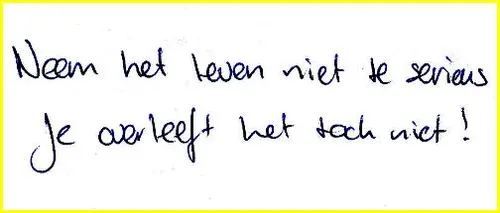 Neem het leven niet te serieus
Je overleeft het toch niet!